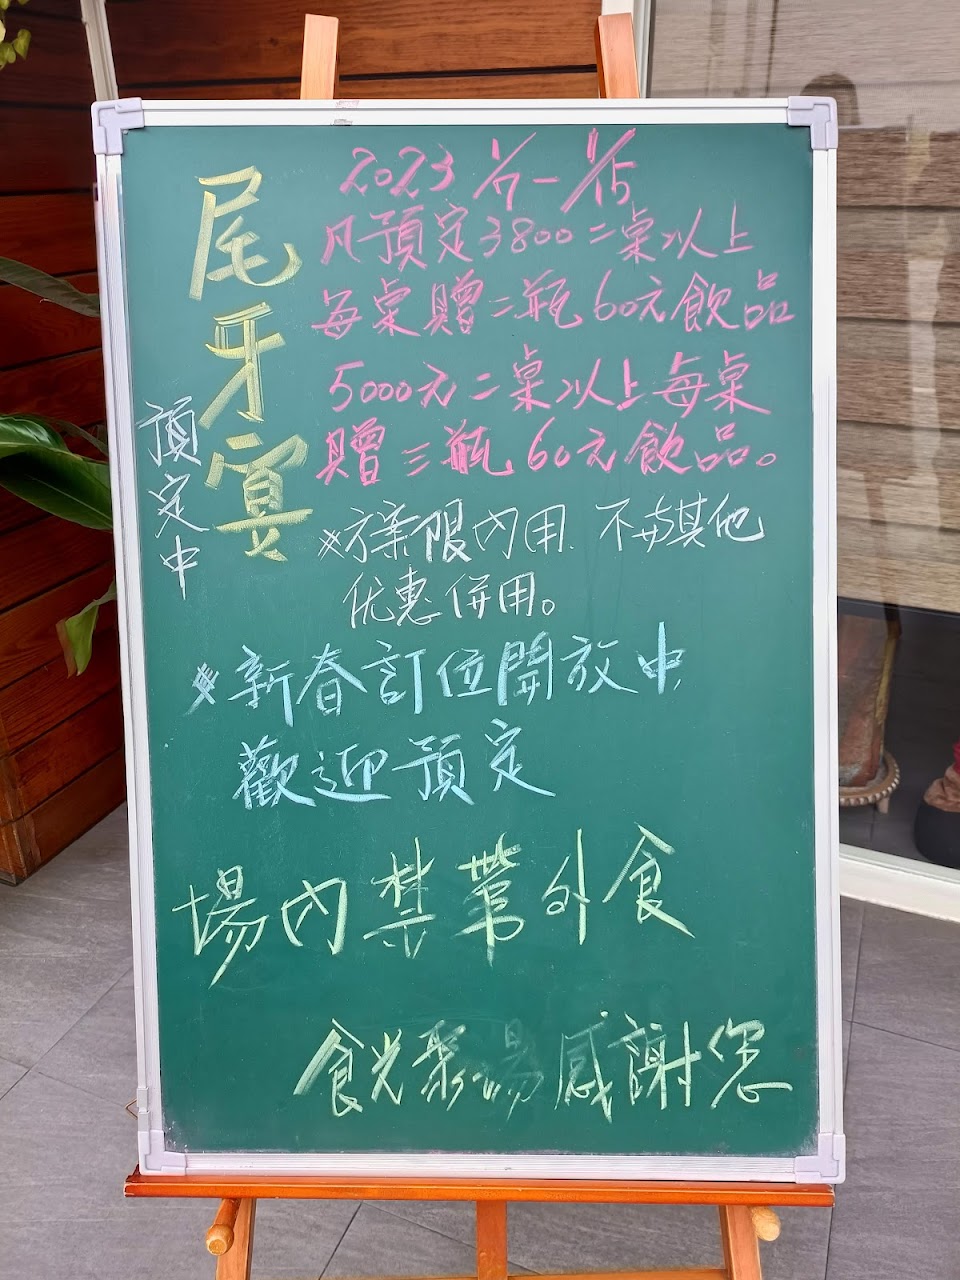 尾牙宴
預定中
2023 1/7-1/15
凡預定3800二桌以上
每桌贈二瓶60元飲品
5000元二桌以上每桌
贈三瓶60元飲品。
※方案限內用.不與其他
优惠併用。
※新春訂位開放中
歡迎預定
場內禁帶外食
食光聚場感謝您